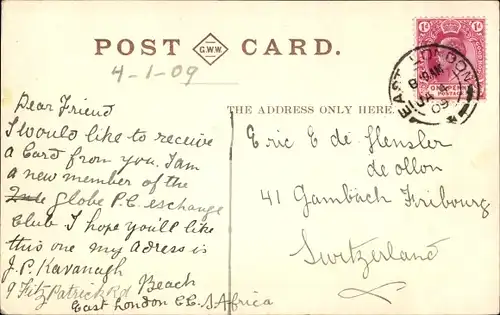 POST G.W.W. CARD.
4-1-09
THE ADDRESS ONLY HERE.
1d 1d
ONE PENNY
POSTAGE
EAST LONDON
JA 4
09
Dear Friend
I would like to receive
a Card from you. I am
a new member of the
globe P.C. exchange
Club I hope you'll like
this one my adress is
J.P. Kavanagh
9 Fitz Patrick Rd Beach
East London C.C. S. Africa
Eric E de
de ollon
41 Gambach Fribourg
Switzerland